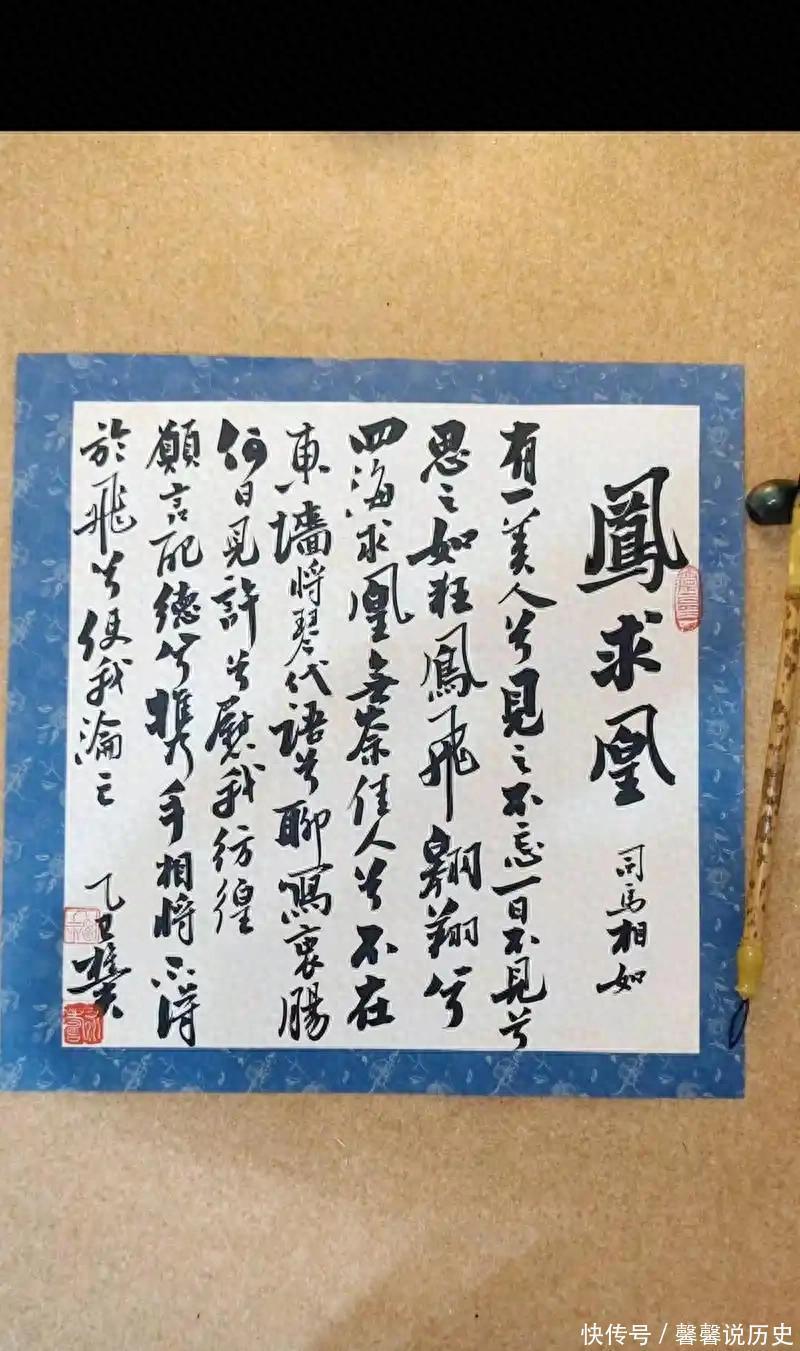 鳳求凰
司馬相如
有一美人兮見之不忘一日不見兮
思之如狂鳳飛翱翔兮
四海求凰無奈佳人兮不在
東墻將琴代語兮聊寫衷腸
何日見許兮慰我彷徨
願言配德兮携手相將不得
於飛兮使我淪亡
乙巳
快传号 / 馨馨说历史